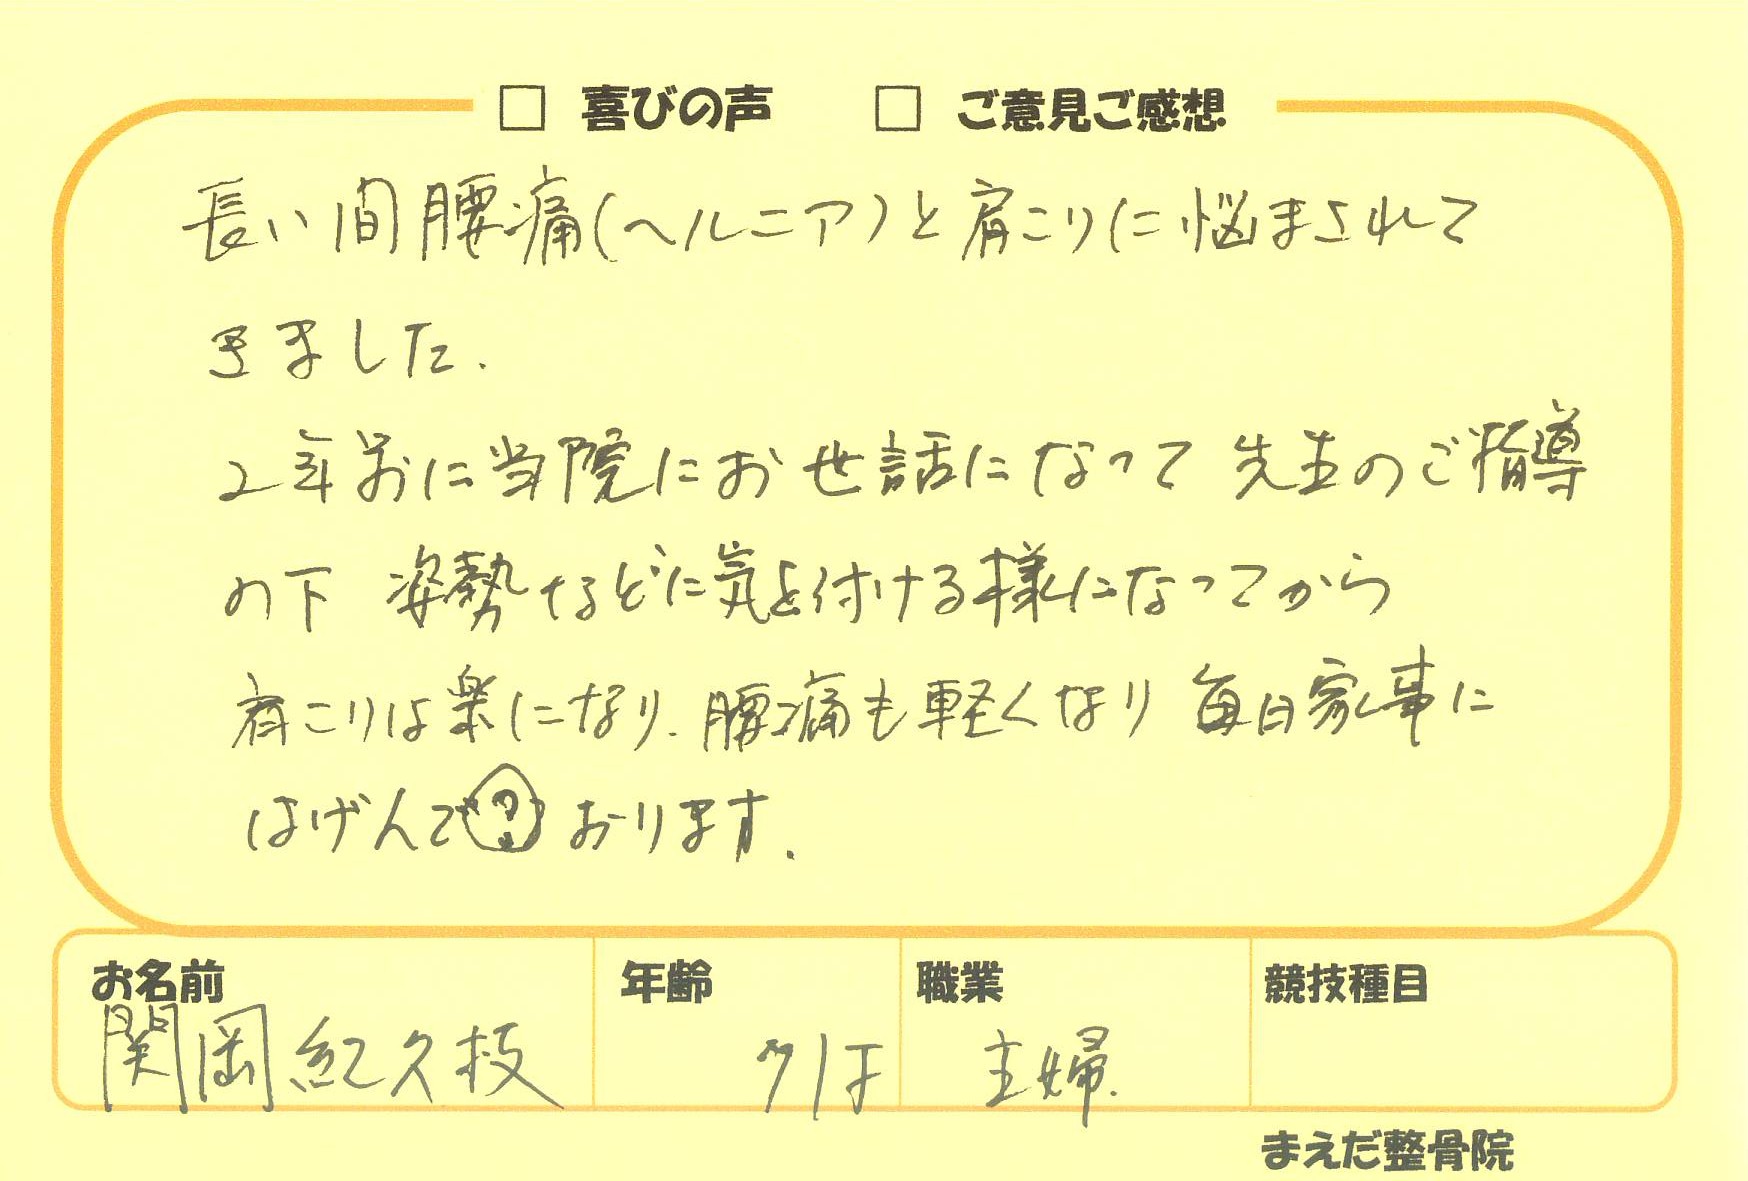 □ 喜びの声 □ ご意見ご感想
長い間腰痛(ヘルニア)と肩こりに悩まされて
きました.
2年前に当院にお世話になって先生のご指導
の下 姿勢などに気を付ける様になってから
肩こりは楽になり.腰痛も軽くなり毎日家事に
はげんで?おります.
お名前 年齢 職業 競技種目
関岡紀久枝 71才 主婦.
まえだ整骨院